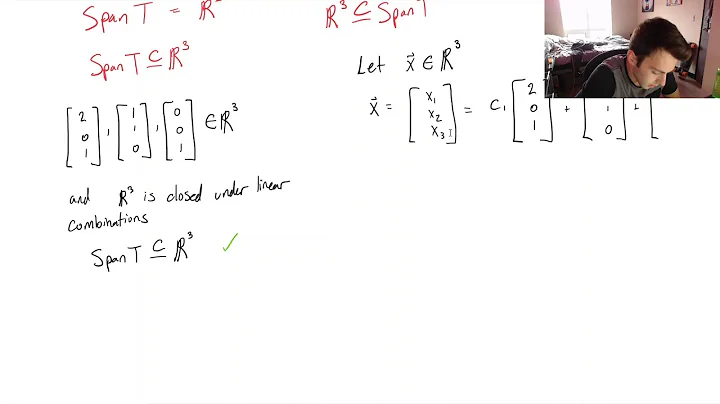 Span T = ℝ³
Span T ⊆ ℝ³
[2 0 1], [1 1 0], [0 0 1] ∈ ℝ³
and ℝ³ is closed under linear
combinations
Span T ⊆ ℝ³ ✓
ℝ³ ⊆ Span T
Let x⃗ ∈ ℝ³
x⃗ = [x₁ x₂ x₃] = c₁ [2 0 1] + [1 0] + [